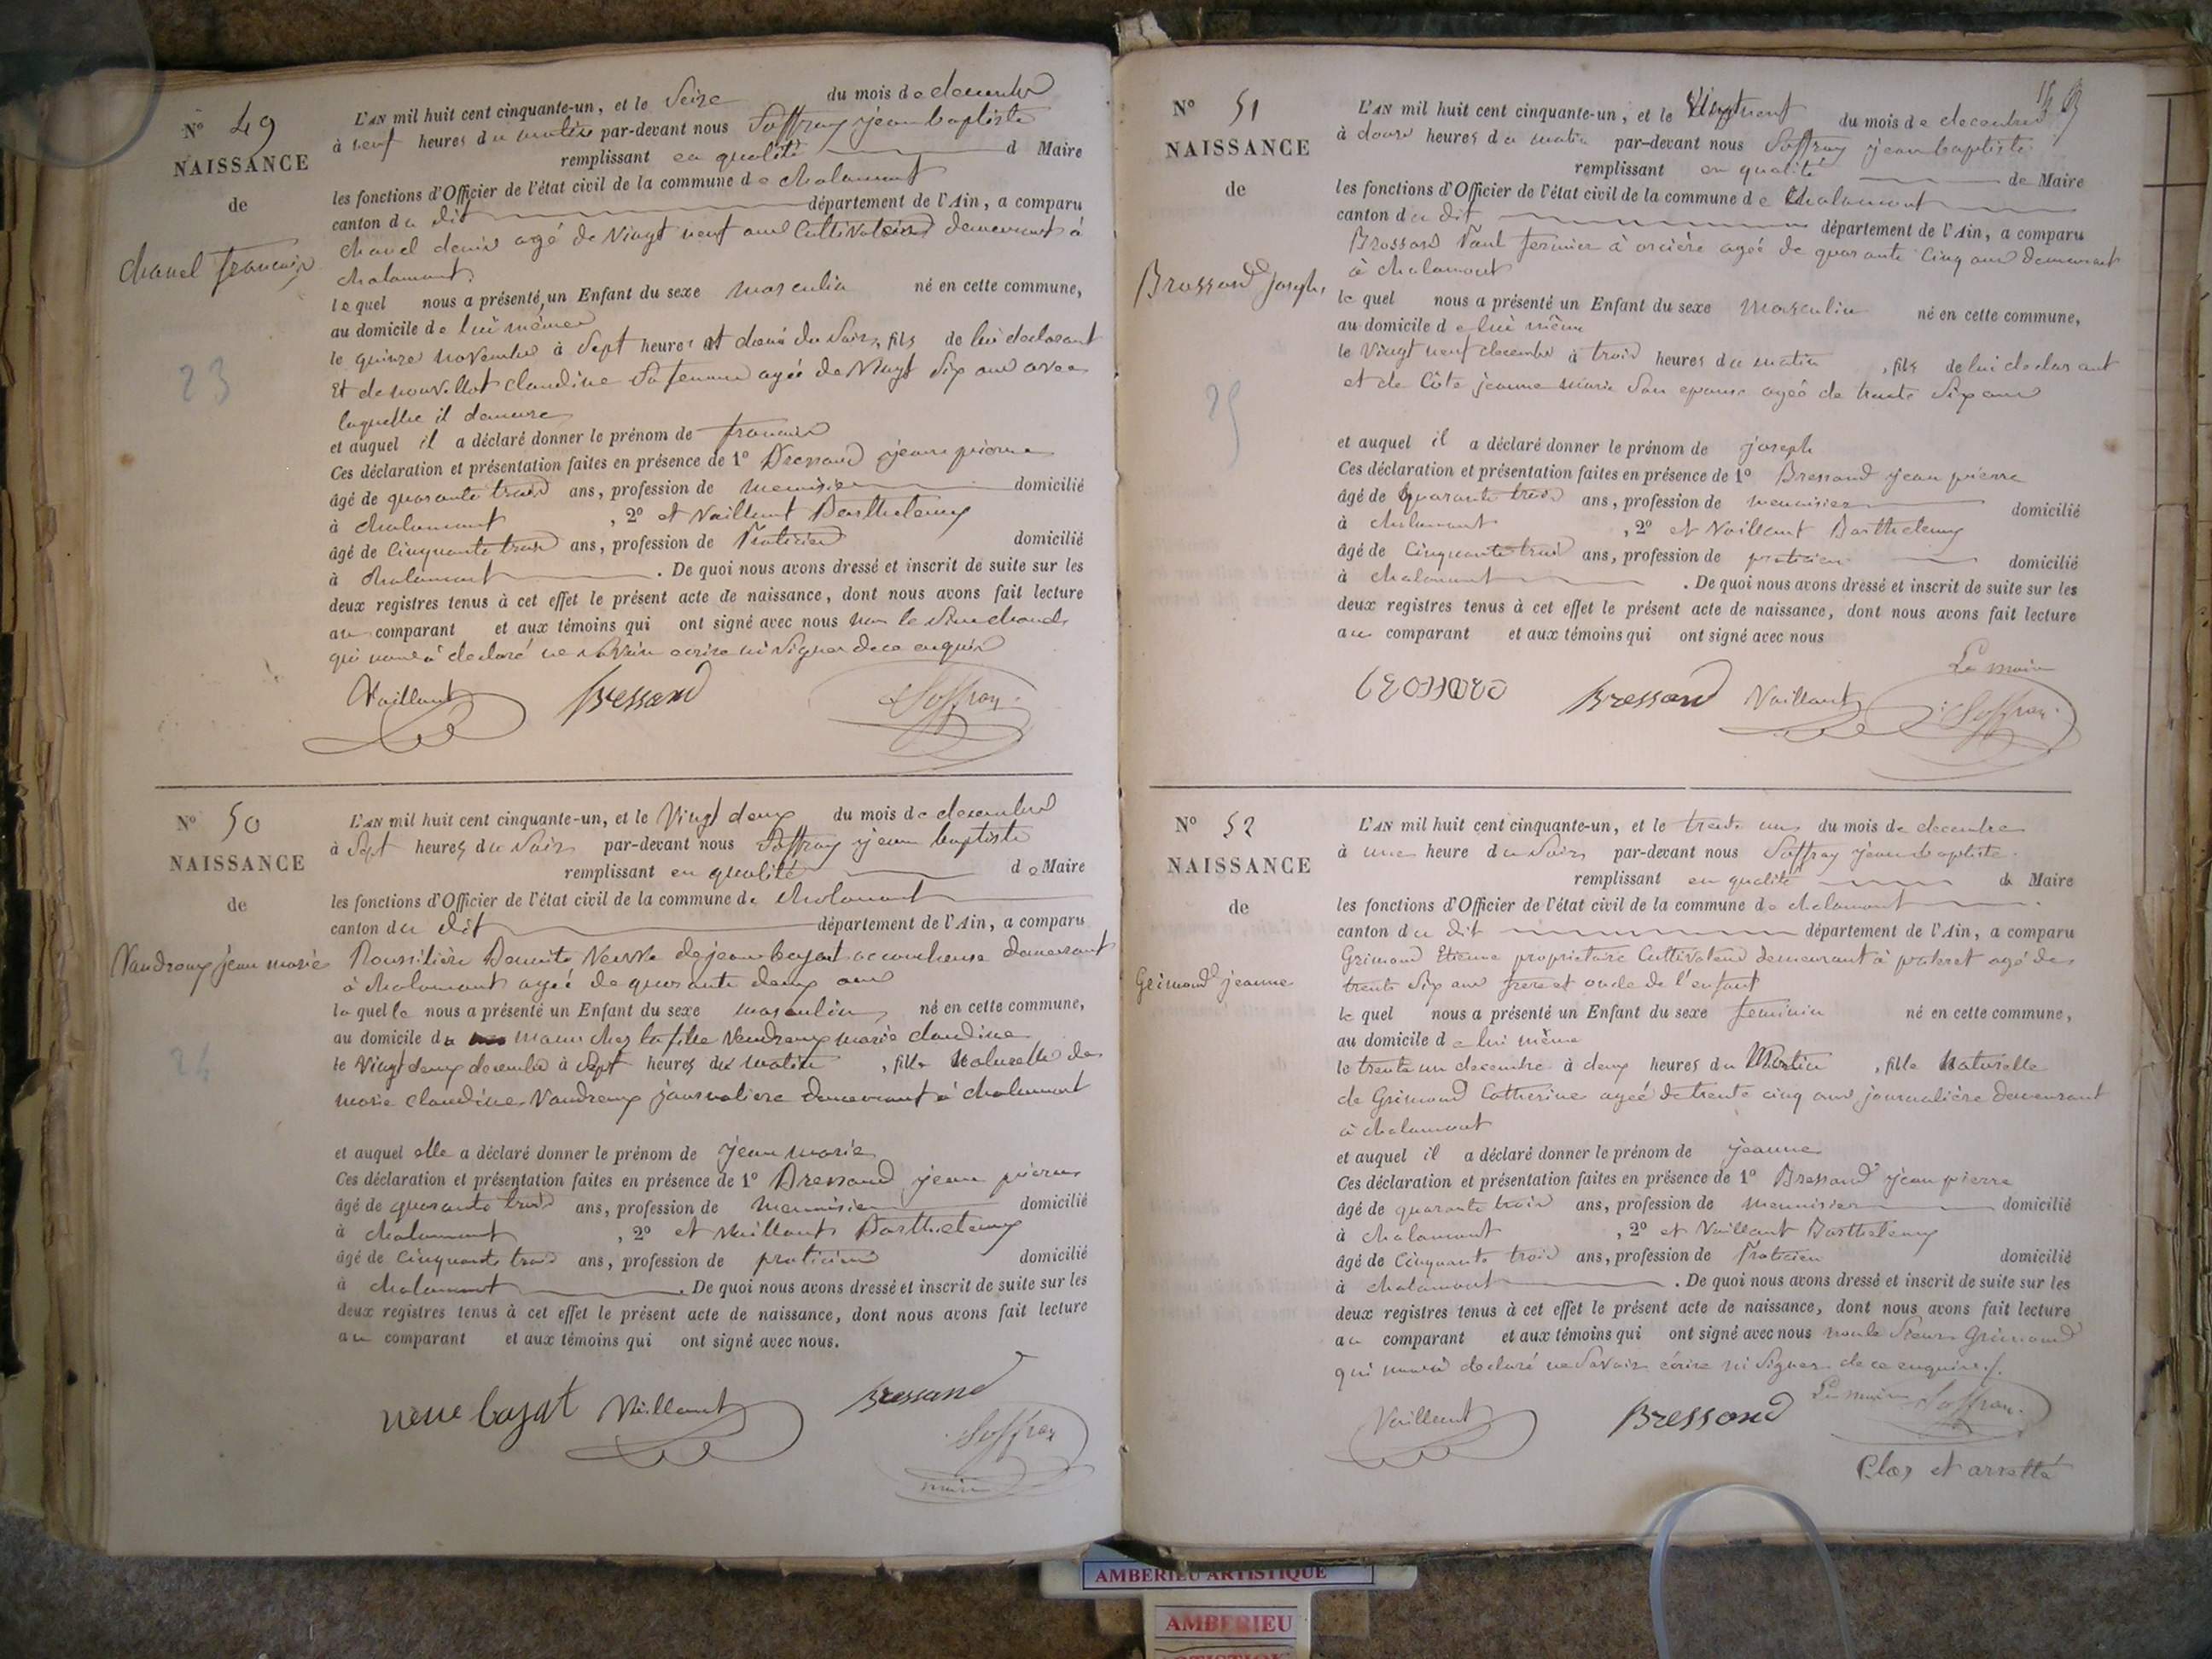 N° 49
NAISSANCE
de
chanel francois
23
L'AN mil huit cent cinquante-un, et le Seize du mois de decembre
à neuf heures du matin par-devant nous Soffray jean baptiste
remplissant en qualité d Maire
les fonctions d'Officier de l'état civil de la commune de chalamont
canton du dit département de l'Ain, a comparu
chanel denis agé de Vingt neuf ans Cultivateur demeurant à
chalamont
lequel nous a présenté un Enfant du sexe masculin né en cette commune,
au domicile de lui même
le quinze novembre à Sept heures et demi du Soir, fils de lui declarant
Et de claudine Sa femme agée de Vingt Six ans avec
laquelle il demeure
et auquel il a déclaré donner le prénom de francois
Ces déclaration et présentation faites en présence de 1° Bressand jean pierre
âgé de quarante trois ans, profession de menuisier domicilié
à chalamont, 2° et Vaillant Barthelemy
âgé de Cinquante trois ans, profession de Praticien domicilié
à chalamont. De quoi nous avons dressé et inscrit de suite sur les
deux registres tenus à cet effet le présent acte de naissance, dont nous avons fait lecture
au comparant et aux témoins qui ont signé avec nous non le Sieur chanel
qui nous à declaré ne Savoir ecrire ni Signer de ce enquis
Vaillant Bressand Soffray
N° 50
NAISSANCE
de
Vandroux jean marie
24
L'AN mil huit cent cinquante-un, et le Vingt deux du mois de decembre
à Sept heures du Soir par-devant nous Soffray jean baptiste
remplissant en qualité de Maire
les fonctions d'Officier de l'état civil de la commune de chalamont
canton du dit département de l'Ain, a comparu
Roussilière Benoite Veuve de jean bajat accoucheuse demeurant
à chalamont agée de quarante deux ans
laquelle nous a présenté un Enfant du sexe masculin né en cette commune,
au domicile de chez la fille Vandroux marie claudine
le Vingt deux decembre à Sept heures du matin, fils Naturelle de
marie claudine Vandroux journaliere demeurant à chalamont
et auquel elle a déclaré donner le prénom de jean marie
Ces déclaration et présentation faites en présence de 1° Bressand jean pierre
âgé de quarante trois ans, profession de menuisier domicilié
à chalamont, 2° et Vaillant Barthelemy
âgé de Cinquante trois ans, profession de praticien domicilié
à chalamont. De quoi nous avons dressé et inscrit de suite sur les
deux registres tenus à cet effet le présent acte de naissance, dont nous avons fait lecture
au comparant et aux témoins qui ont signé avec nous.
veuve bajat Vaillant Bressand
Soffray
maire
N° 51
NAISSANCE
de
Brossard joseph
25
L'AN mil huit cent cinquante-un, et le Vingt neuf du mois de decembre
à heures du matin par-devant nous Soffray jean baptiste
remplissant en qualité de Maire
les fonctions d'Officier de l'état civil de la commune de Chalamont
canton du dit département de l'Ain, a comparu
Brossard Paul fermier à orcière agée de quarante Cinq ans demeurant
à chalamont
lequel nous a présenté un Enfant du sexe Masculin né en cette commune,
au domicile de lui même
le Vingt neuf decembre à trois heures du matin, fils de lui declarant
et de Côte jeanne marie Son epouse agée de trente Six ans
et auquel il a déclaré donner le prénom de joseph
Ces déclaration et présentation faites en présence de 1° Bressand jean pierre
âgé de Quarante trois ans, profession de menuisier domicilié
à chalamont, 2° et Vaillant Barthelemy
âgé de Cinquante trois ans, profession de praticien domicilié
à chalamont. De quoi nous avons dressé et inscrit de suite sur les
deux registres tenus à cet effet le présent acte de naissance, dont nous avons fait lecture
au comparant et aux témoins qui ont signé avec nous
Le maire
Bressand Vaillant Soffray
N° 52
NAISSANCE
de
Grimond jeanne
L'AN mil huit cent cinquante-un, et le trente un du mois de decembre
à une heure du Soir par-devant nous Soffray jean baptiste
remplissant en qualité de Maire
les fonctions d'Officier de l'état civil de la commune de chalamont
canton du dit département de l'Ain, a comparu
Grimond Etienne propriétaire Cultivateur demeurant à agé de
trente Six ans frere et oncle de l'enfant
lequel nous a présenté un Enfant du sexe feminin né en cette commune,
au domicile de lui même
le trente un decembre à deux heures du Matin, fille Naturelle
de Grimond Catherine agée de trente cinq ans journalière demeurant
à chalamont
et auquel il a déclaré donner le prénom de jeanne
Ces déclaration et présentation faites en présence de 1° Bressand jean pierre
âgé de quarante trois ans, profession de menuisier domicilié
à chalamont, 2° et Vaillant Barthelemy
âgé de Cinquante trois ans, profession de Praticien domicilié
à chalamont. De quoi nous avons dressé et inscrit de suite sur les
deux registres tenus à cet effet le présent acte de naissance, dont nous avons fait lecture
au comparant et aux témoins qui ont signé avec nous non le Sieur Grimond
qui nous à declaré ne Savoir écrire ni Signer de ce enquis
Vaillant Bressand Le maire Soffray
Clos et arretté
AMBERIEU ARTISTIQUE
AMBERIEU
ARTISTIQUE